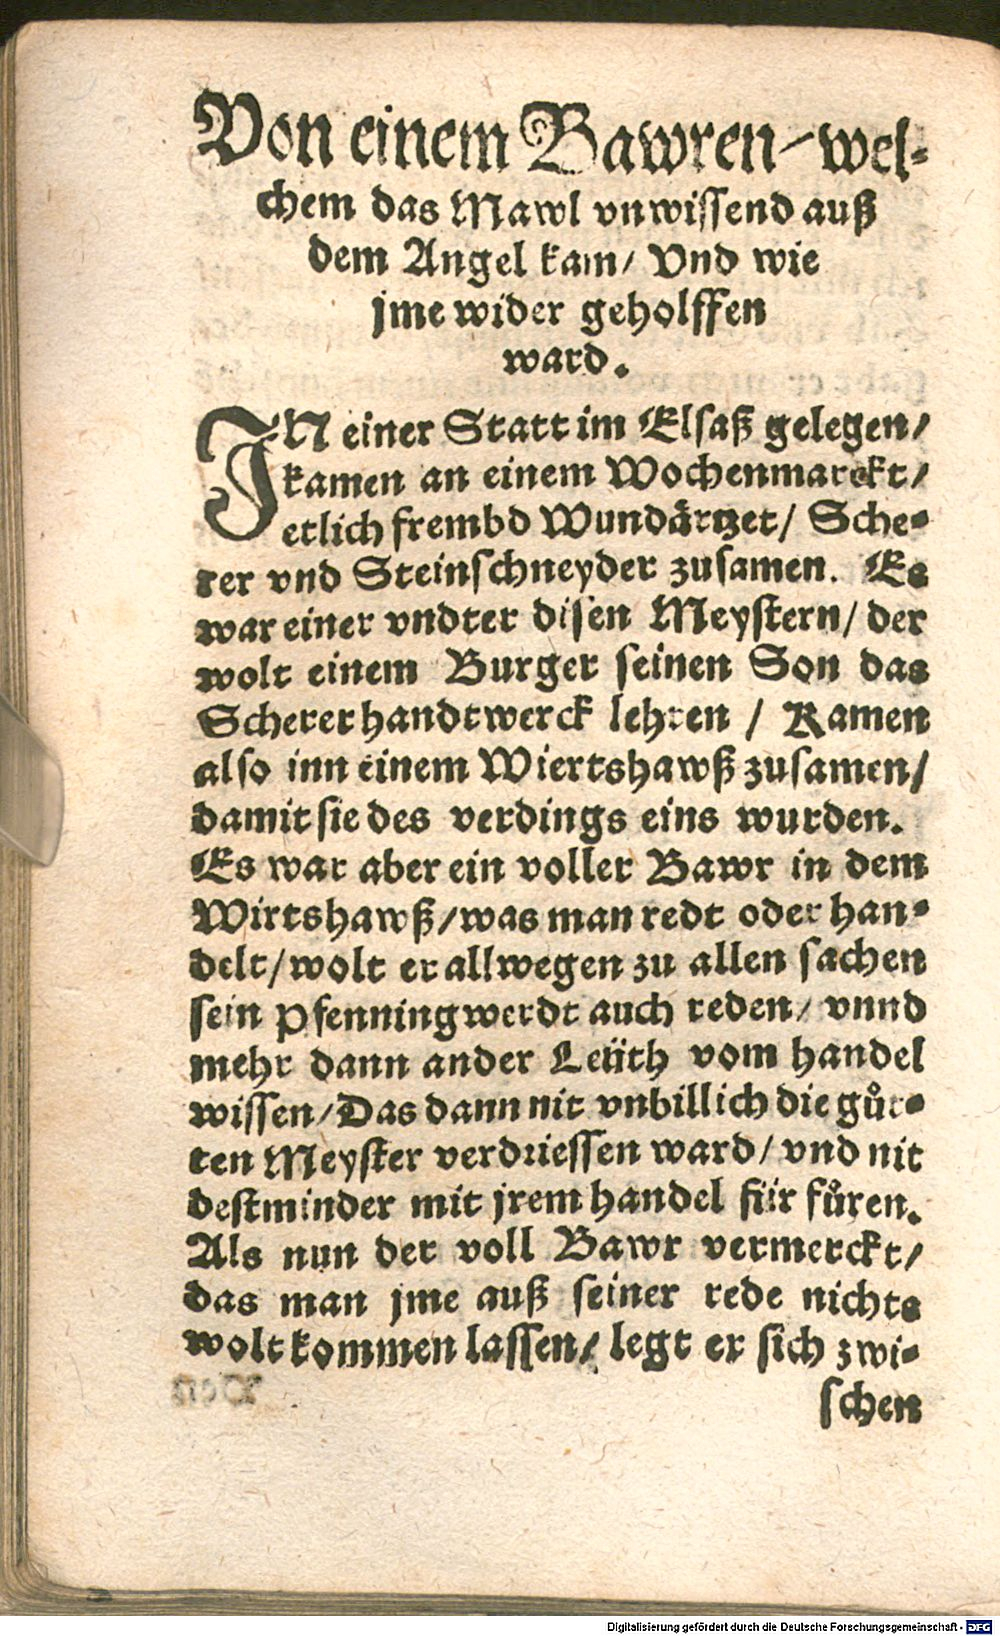 Von einem Bawren / wel-
chem das Mawl vnwissend auß
dem Angel kam / Vnd wie
jme wider geholffen
ward.
IN einer Statt im Elsaß gelegen /
kamen an einem Wochenmarckt /
etlich frembd Wundärtzet / Sche-
rer vnd Steinschneyder zusamen. Es
war einer vndter disen Meystern / der
wolt einem Burger seinen Son das
Schererhandtwerck lehren / Kamen
also inn einem Wiertshawß zusamen /
damit sie des verdings eins wurden.
Es war aber ein voller Bawr in dem
Wirtshawß / was man redt oder han-
delt / wolt er allwegen zu allen sachen
sein Pfenningwerdt auch reden / vnnd
mehr dann ander Leüth vom handel
wissen / Das dann nit vnbillich die gůt-
ten Meyster verdriessen ward / vnd nit
destminder mit jrem handel für fůren.
Als nun der voll Bawr vermerckt /
das man jme auß seiner rede nichts
wolt kommen lassen / legt er sich zwi-
schen
Digitalisierung gefördert durch die Deutsche Forschungsgemeinschaft - DFG